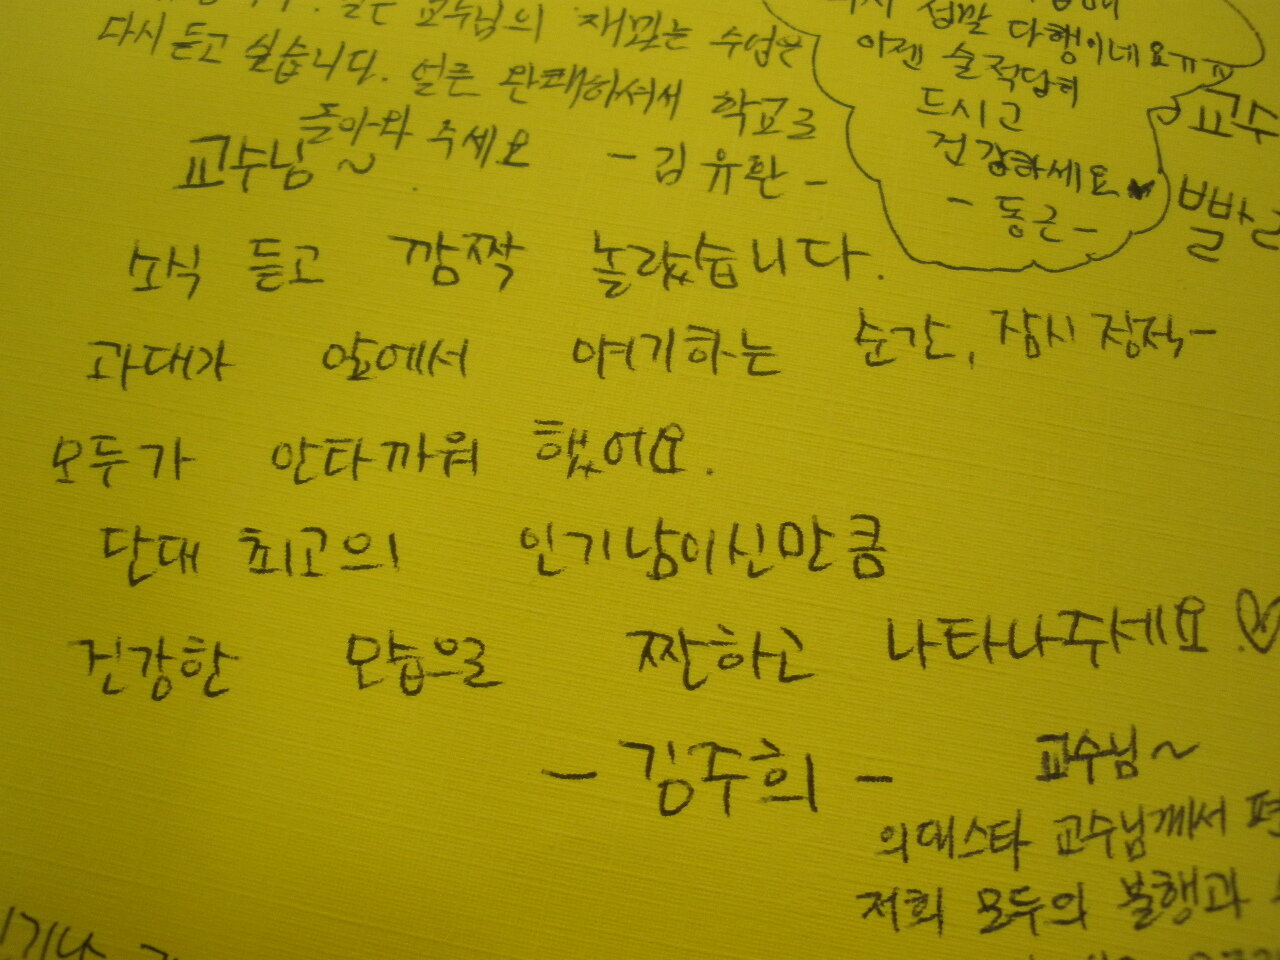 교수님의 재밌는 수업을
다시 듣고 싶습니다. 얼른 완쾌하셔서 학교로
돌아와 주세요 - 김유환 -
정말 다행이네요ㅠㅠ
이젠 술 적당히
드시고
건강하세요♥
- 동근 -
교수님~
소식 듣고 깜짝 놀랐습니다.
과대가 앞에서 얘기하는 순간, 잠시 정적-
모두가 안타까워 했어요.
단대 최고의 인기남이신만큼
건강한 모습으로 짠하고 나타나주세요.♡
- 김주희 -
교수
빨리
교수님~
의대스타 교수님께서
저희 모두의 불행과